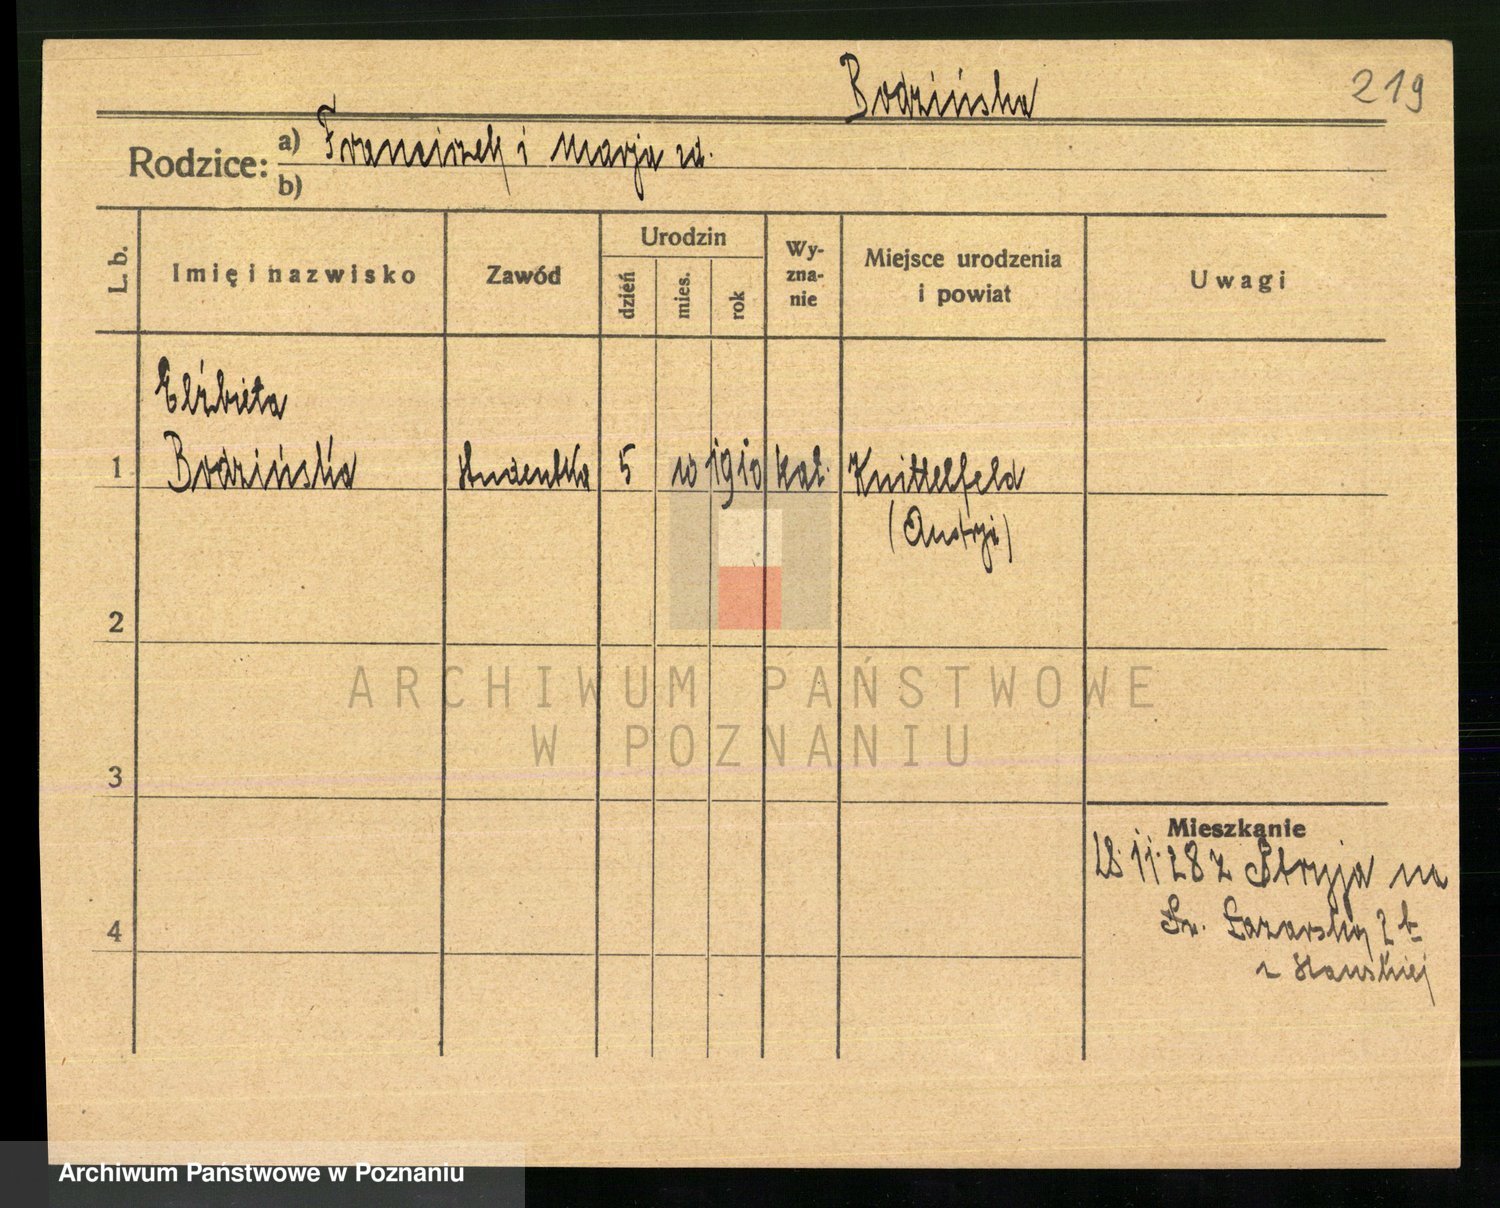 Bodzińska 219
Rodzice: a) Franciszek i Marja zd.
b)
L. b. Imię i nazwisko Zawód Urodzin dzień mies. rok Wyznanie Miejsce urodzenia i powiat Uwagi
Elżbieta
1 Bodzińska studentka 5 10 1910 kat. Knittelfeld
(Austrji)
2
ARCHIWUM PAŃSTWOWE
W POZNANIU
3
Mieszkanie
28.11.28 z Stryja na
Św. Łazarską 2b
4
Archiwum Państwowe w Poznaniu